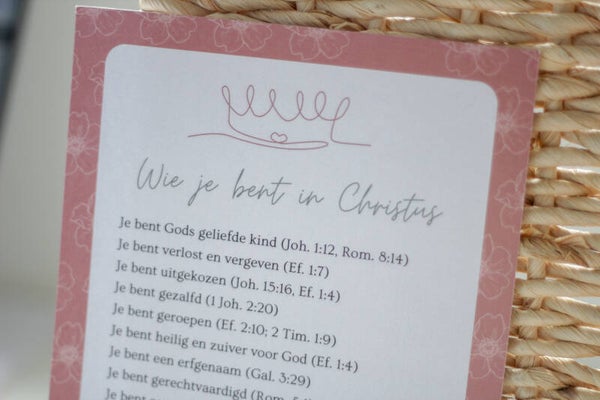 Wie je bent in Christus
Je bent Gods geliefde kind (Joh. 1:12, Rom. 8:14)
Je bent verlost en vergeven (Ef. 1:7)
Je bent uitgekozen (Joh. 15:16, Ef. 1:4)
Je bent gezalfd (1 Joh. 2:20)
Je bent geroepen (Ef. 2:10; 2 Tim. 1:9)
Je bent heilig en zuiver voor God (Ef. 1:4)
Je bent een erfgenaam (Gal. 3:29)
Je bent gerechtvaardigd (Rom.